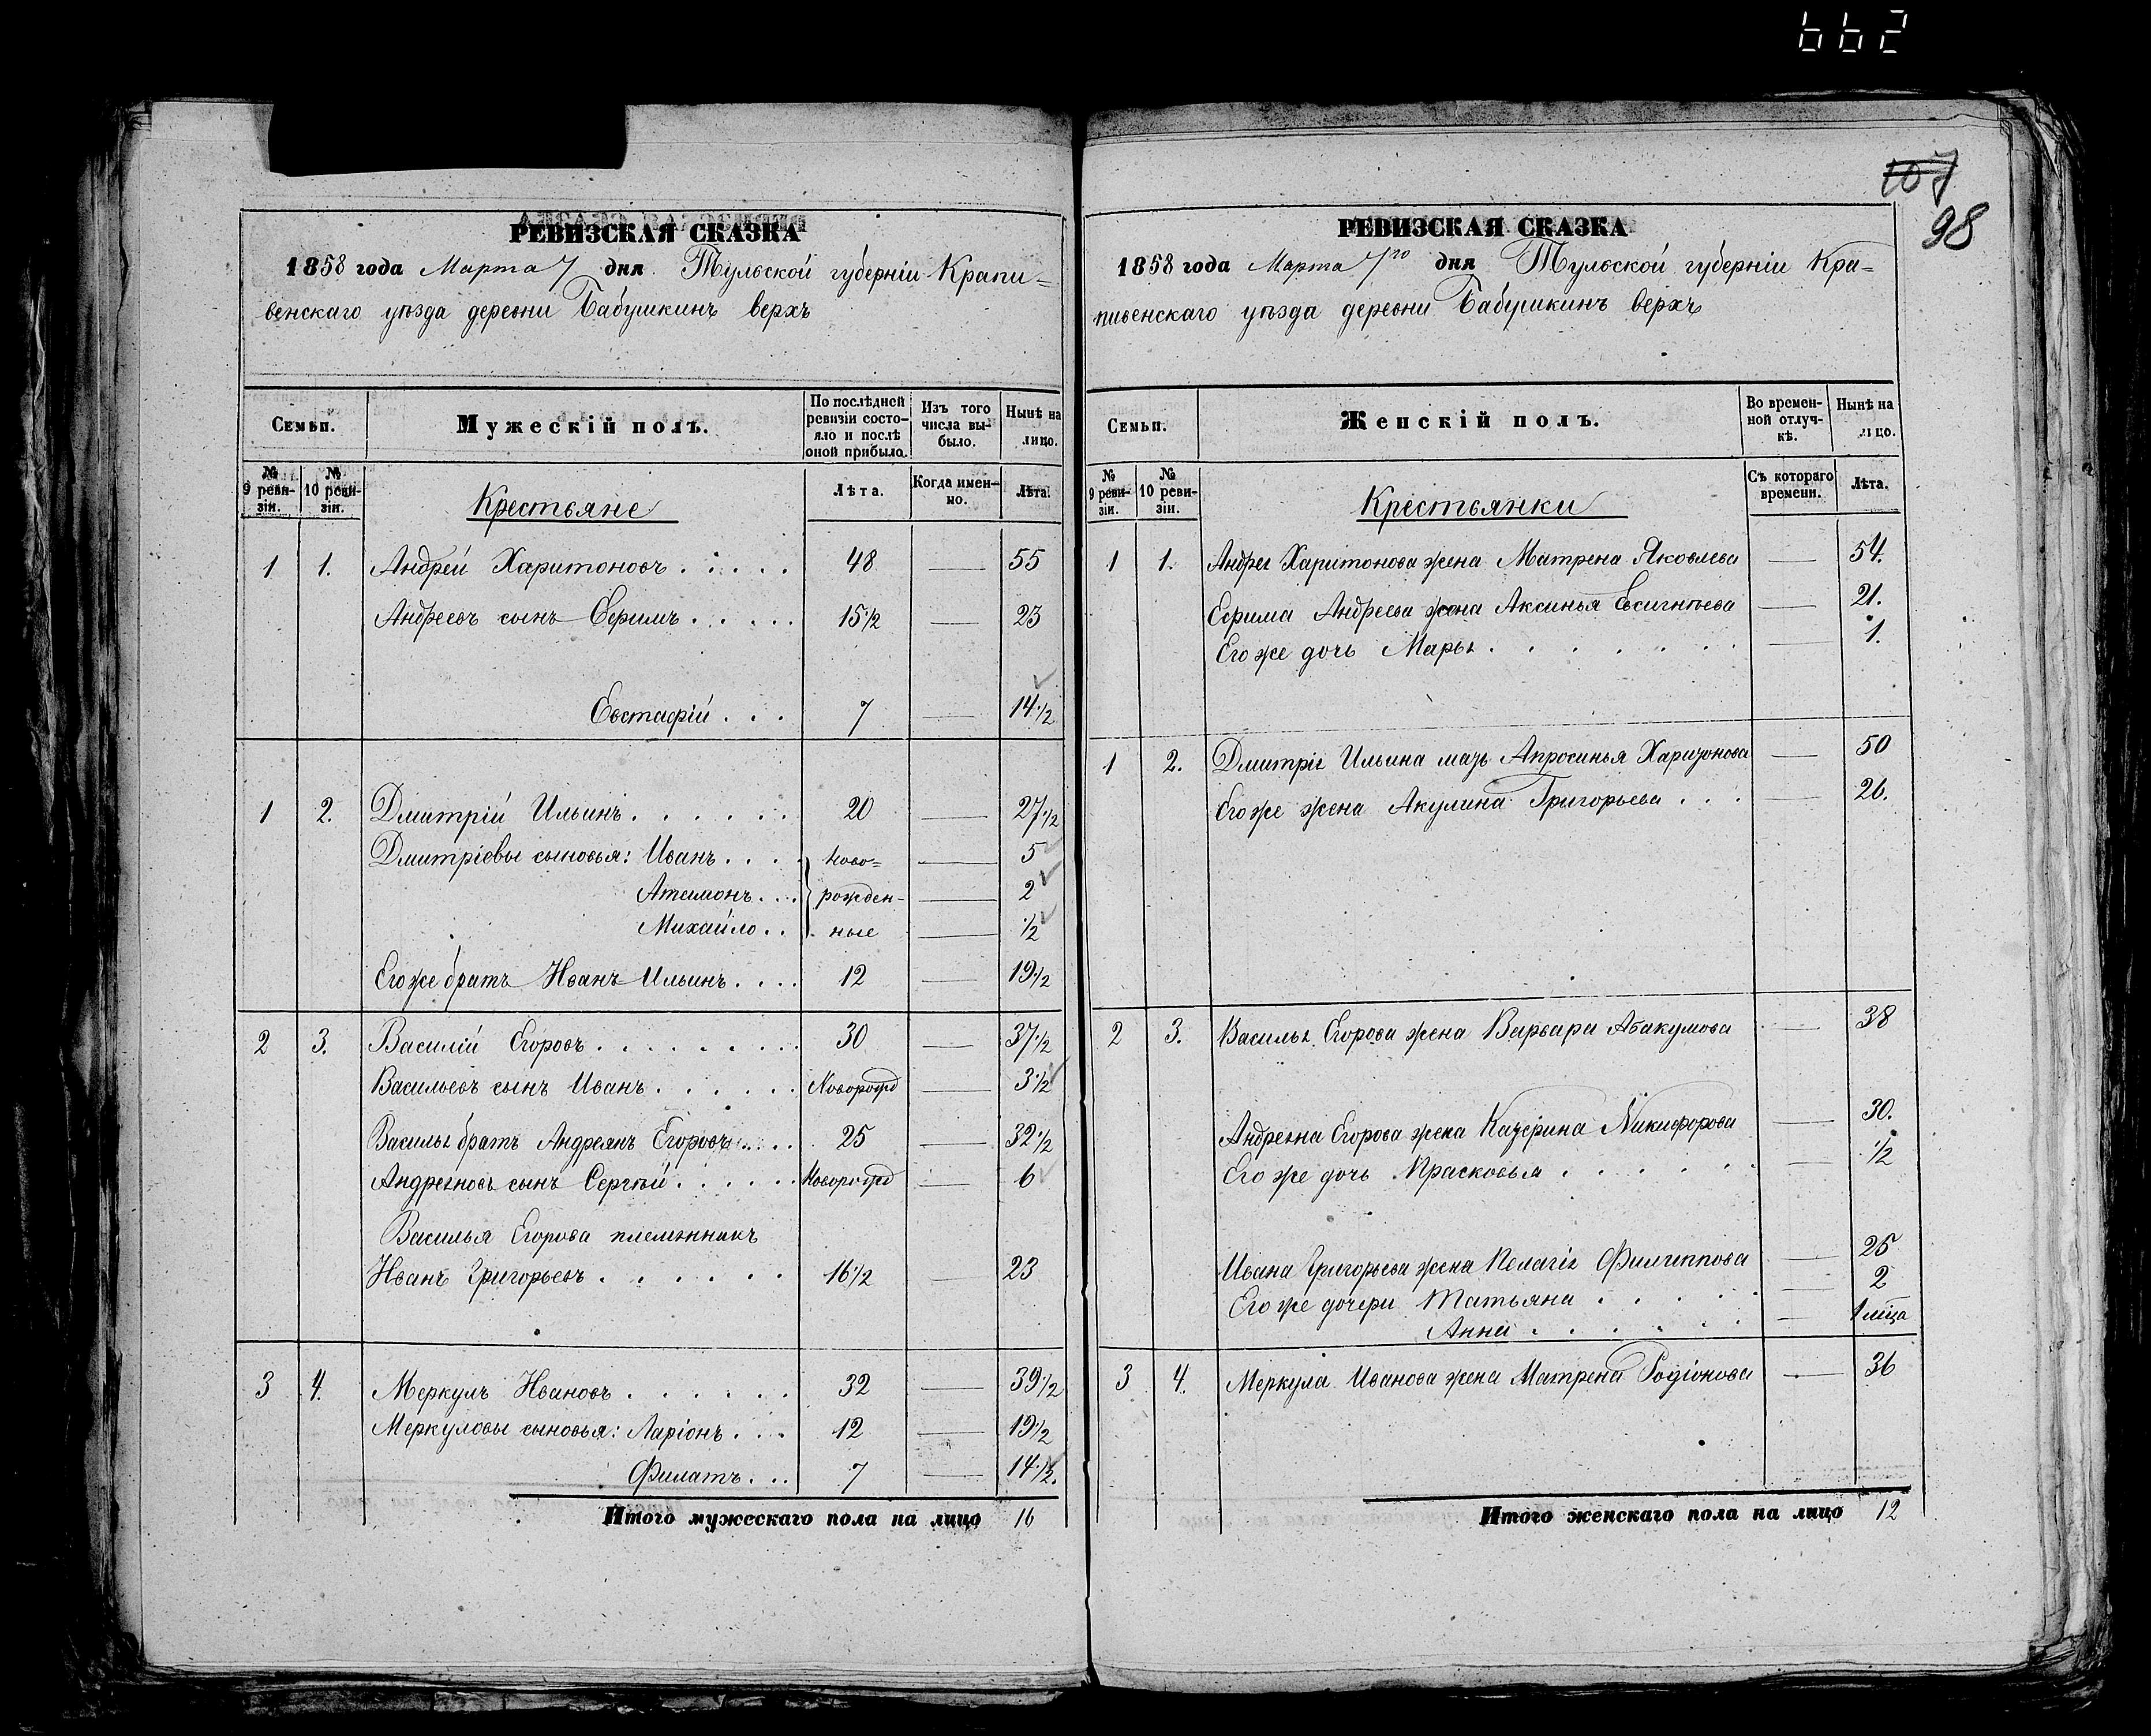 662
107
98
РЕВИЗСКАЯ СКАЗКА
1858 года Марта 7 дня Тульской губерніи Крапи=
венскаго уѣзда деревни Бабушкинъ верхъ
Семьи.
Мужескій полъ.
По послѣдней ревизіи состояло и послѣ оной прибыло.
Изъ того числа выбыло.
Нынѣ на лицо.
№ 9 ревизіи.
№ 10 ревизіи.
Крестьяне
Лѣта.
Когда именно.
Лѣта.
1 1. Андрей Харитоновъ . . . . . 48 — 55
Андреевъ сынъ Ефимъ . . . . . 15 1/2 — 23
Евстафій . . . 7 — 14 1/2
1 2. Дмитрій Ильинъ . . . . . . 20 — 27 1/2
Дмитріевы сыновья: Иванъ . . . . ново= — 5
Атемонъ . . . рожден- — 2
Михайло . . ные — 1/2
Его же братъ Иванъ Ильинъ . . . . 12 — 19 1/2
2 3. Василій Егоровъ . . . . . . . . 30 — 37 1/2
Васильевъ сынъ Иванъ . . . . . . Неворожд — 3 1/2
Василья братъ Андреянъ Егоровъ . . . 25 — 32 1/2
Андреяновъ сынъ Сергѣй . . . . . . Новорожд — 6
Василья Егорова племянникъ
Иванъ Григорьевъ . . . . . . 16 1/2 — 23
3 4. Меркулъ Ивановъ . . . . . . 32 — 39 1/2
Меркуловы сыновья: Ларіонъ . . . 12 — 19 1/2
Филатъ . . . 7 — 14 1/2.
Итого мужескаго пола на лицо 16
РЕВИЗСКАЯ СКАЗКА
1858 года Марта 7го дня Тульской губерніи Кра=
пивенскаго уѣзда деревни Бабушкинъ верхъ
Семьи.
Женскій полъ.
Во временной отлучкѣ.
Нынѣ на лицо.
№ 9 ревизіи.
№ 10 ревизіи.
Крестьянки
Съ котораго времени.
Лѣта.
1 1. Андрея Харитонова жена Матрена Яковлева — 54.
Ефима Андреева жена Аксинья Евсигнѣева — 21.
Его же дочь Марья . . . . . . . — 1.
1 2. Дмитрія Ильина мать Апросинья Харитонова — 50
Его же жена Акулина Григорьева . . . — 26.
2 3. Василья Егорова жена Варвара Абакумова — 38
Андреяна Егорова жена Катерина Никифорова — 30.
Его же дочь Прасковья . . . . . . — 1/2
Ивана Григорьева жена Пелагія Филиппова — 25
Его же дочери Татьяна . . . . . — 2
Анна . . . . . . — 1 мѣца
3 4. Меркула Иванова жена Матрена Родіонова — 36
Итого женскаго пола на лицо 12